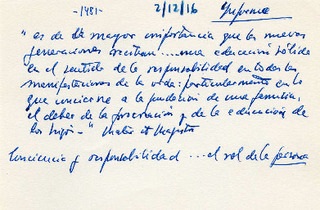 -1481- 2/12/16 Informe
"es de la mayor importancia que las nuevas
generaciones reciban .... una educación sólida
en el sentido de la responsabilidad en todas las
manifestaciones de la vida: particularmente en lo
que concierne a la fundación de una familia,
el deber de la procreación y de la educación de
los hijos -" Mater et Magistra
Conciencia y responsabilidad ... el rol de la persona